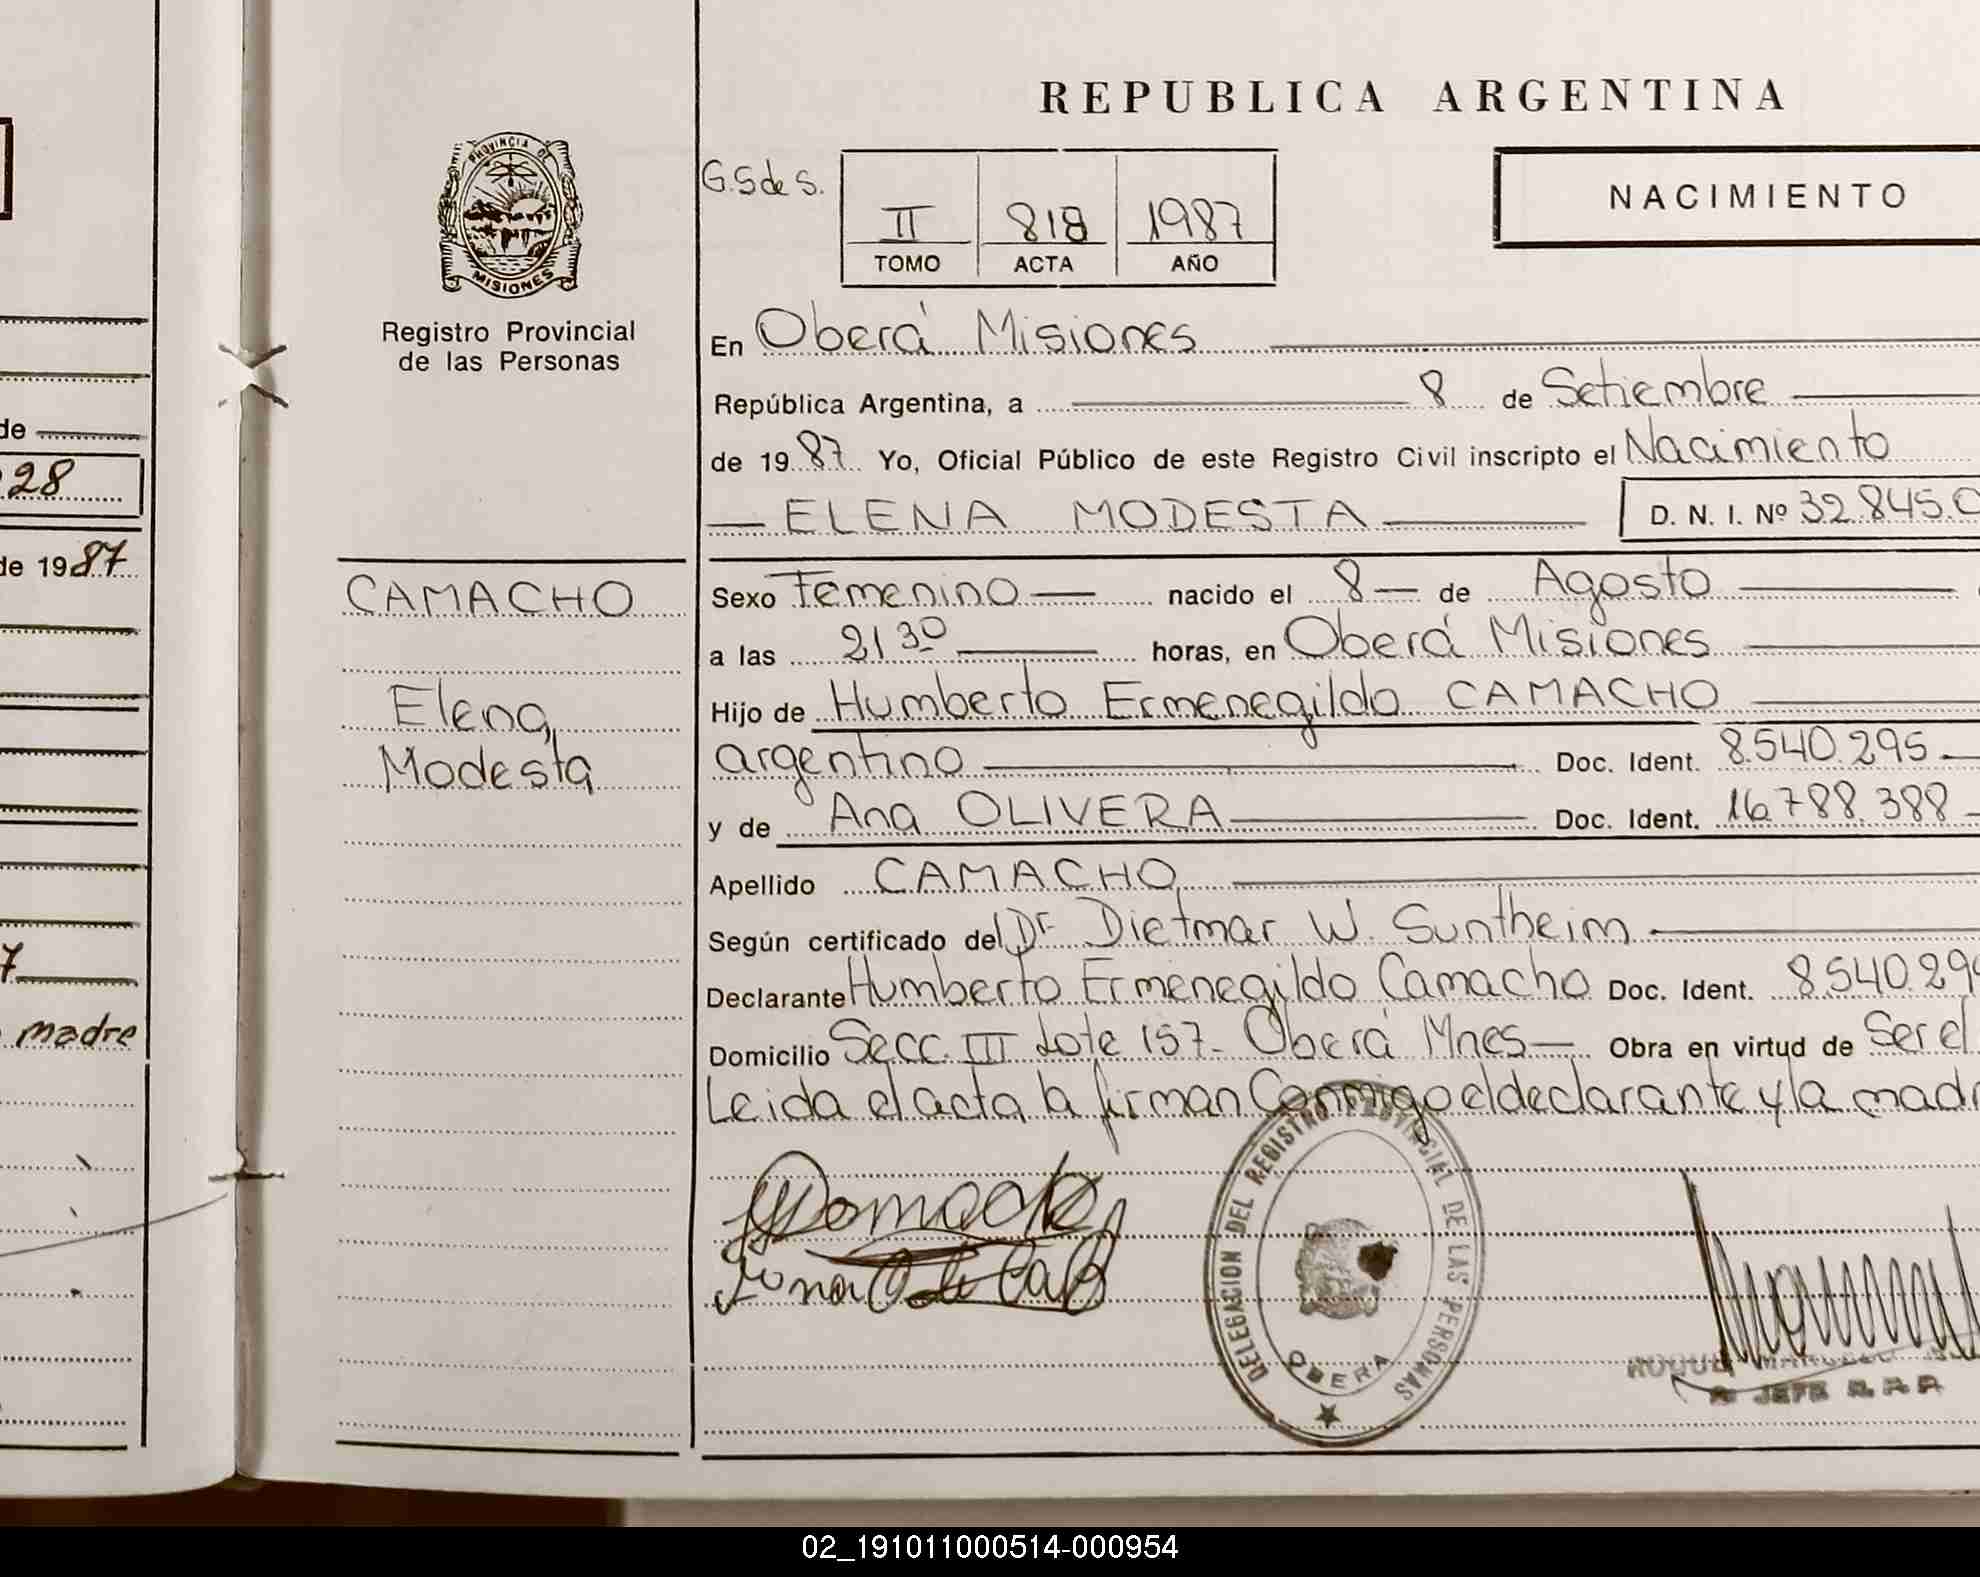 REPUBLICA ARGENTINA
PROVINCIA DE
MISIONES
Registro Provincial
de las Personas
G.S de S.
II 818 1987
TOMO ACTA AÑO
NACIMIENTO
En Oberá Misiones
República Argentina, a 8 de Setiembre
de 1987 Yo, Oficial Público de este Registro Civil inscripto el Nacimiento
ELENA MODESTA D. N. I. Nº 32.845.0
CAMACHO
Elena
Modesta
Sexo Femenino nacido el 8 de Agosto
a las 21 30 horas, en Oberá Misiones
Hijo de Humberto Ermenegildo CAMACHO
argentino Doc. Ident. 8.540.295
y de Ana OLIVERA Doc. Ident. 16.788.388
Apellido CAMACHO
Según certificado del Dr Dietmar W. Suntheim
Declarante Humberto Ermenegildo Camacho Doc. Ident. 8.540.29
Domicilio Secc. III Lote 157- Oberá Mnes Obra en virtud de Ser el
Leida el acta la firman Conmigo el declarante y la mad
DELEGACION DEL REGISTRO PROVINCIAL DE LAS PERSONAS
OBERA
JEFE R.P.P
de
28
de 1987
7
madre
02_191011000514-000954